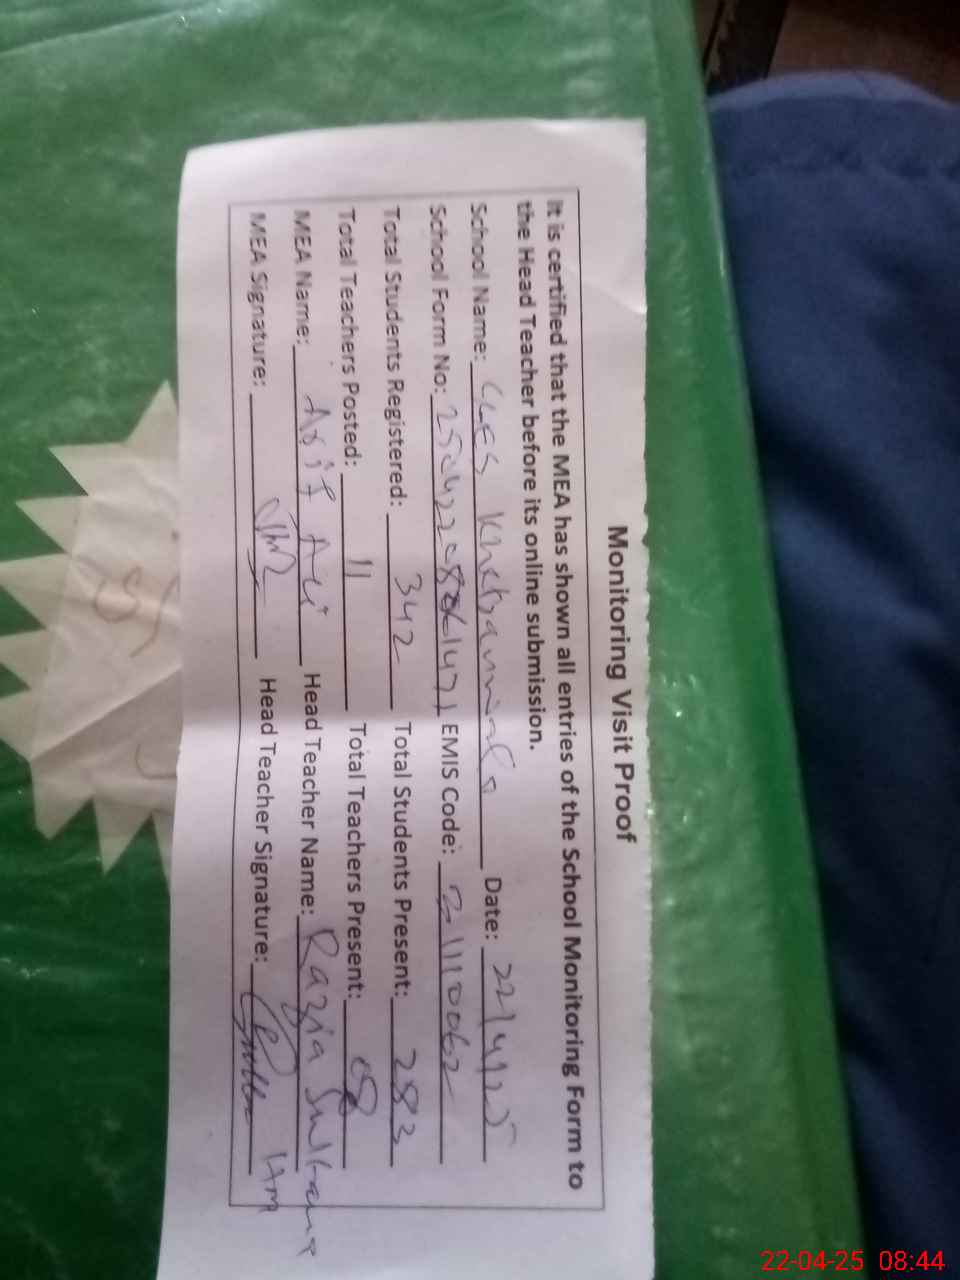 Monitoring Visit Proof
It is certified that the MEA has shown all entries of the School Monitoring Form to
the Head Teacher before its online submission.
School Name: Date: 22/4/25
School Form No: EMIS Code: 21110062
Total Students Registered: 342 Total Students Present: 283
Total Teachers Posted: 11 Total Teachers Present: 08
MEA Name: Asif Ali Head Teacher Name: Razia Sultana
MEA Signature: Head Teacher Signature: HM
22-04-25 08:44